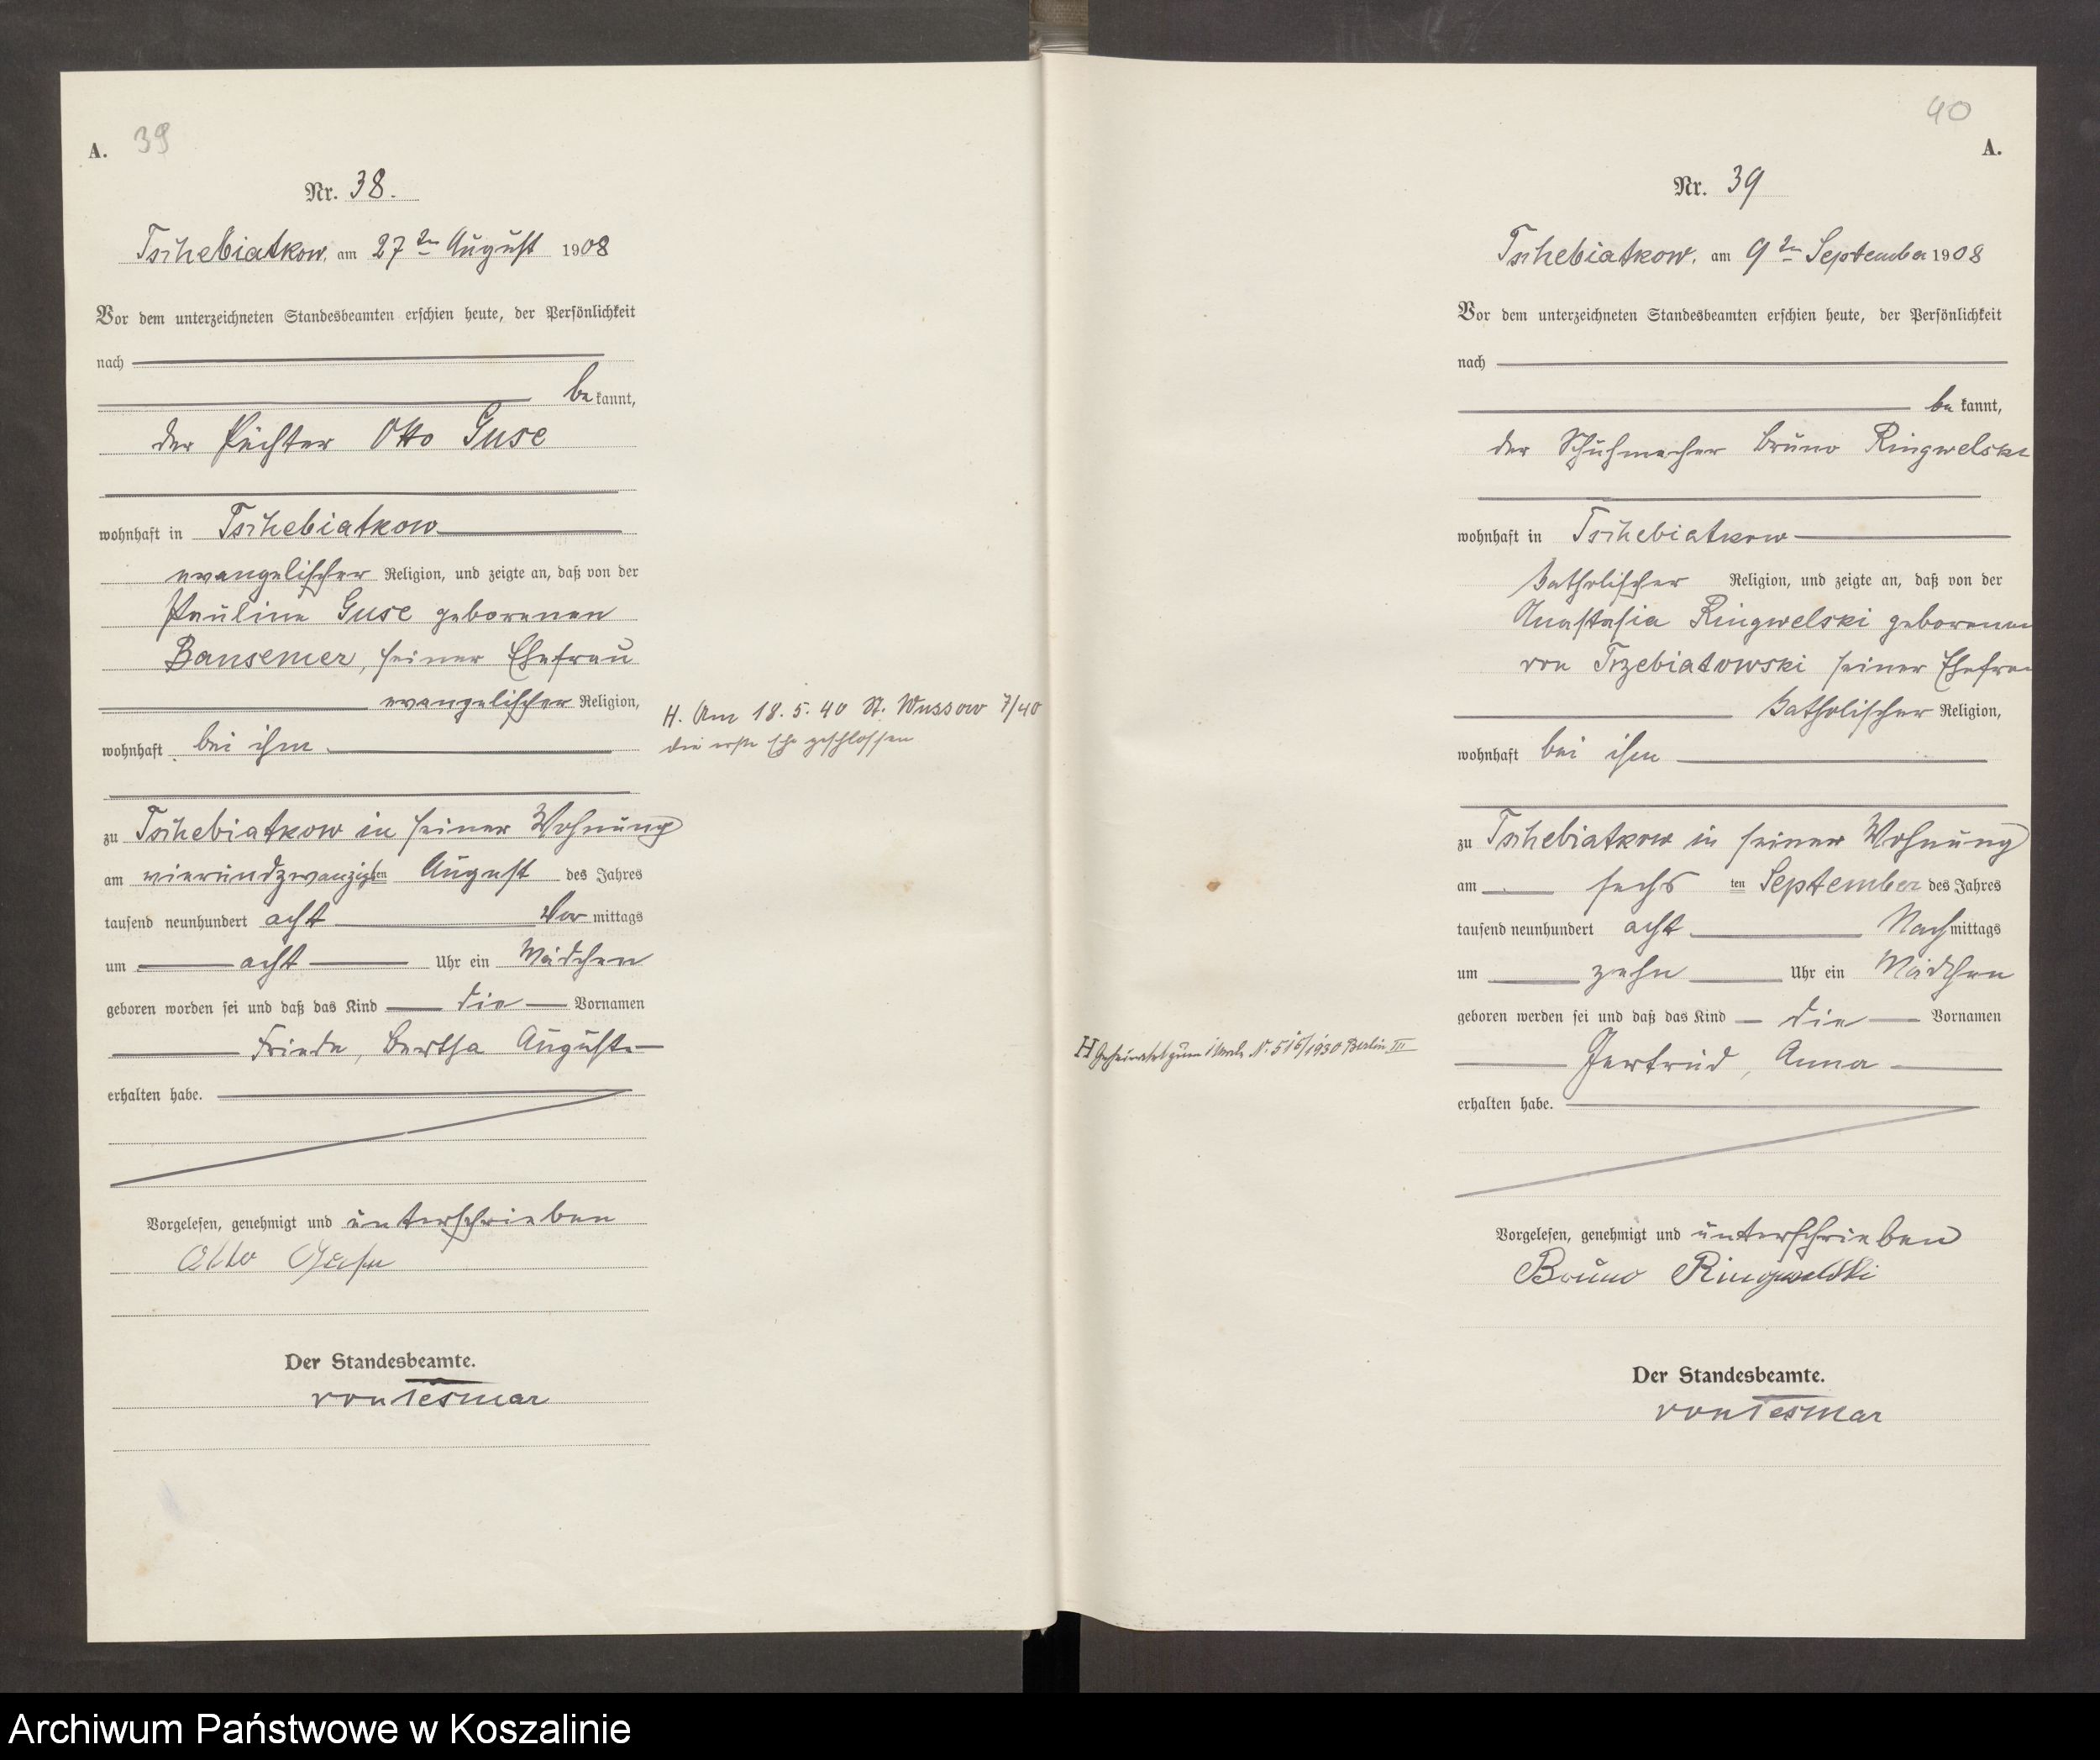 39
A.
Nr. 38.
Tschebiatkow, am 27ten August 1908
Vor dem unterzeichneten Standesbeamten erschien heute, der Persönlichkeit
nach
bekannt,
der Pächter Otto Guse
wohnhaft in Tschebiatkow
evangelischer Religion, und zeigte an, daß von der
Pauline Guse geborenen
Bansemer, seiner Ehefrau
evangelischer Religion,
wohnhaft bei ihm
zu Tschebiatkow in seiner Wohnung
am vierundzwanzigsten August des Jahres
tausend neunhundert acht Vormittags
um acht Uhr ein Mädchen
geboren worden sei und daß das Kind die Vornamen
Frieda, Bertha Auguste
erhalten habe.
Vorgelesen, genehmigt und unterschrieben
Otto Guse
Der Standesbeamte.
von Tesmar
H. Am 18. 5. 40 St. Wussow 7/40
die erste Ehe geschlossen
40
A.
Nr. 39
Tschebiatkow, am 9ten September 1908
Vor dem unterzeichneten Standesbeamten erschien heute, der Persönlichkeit
nach
bekannt,
der Schuhmacher Bruno Ringwelski
wohnhaft in Tschebiatkow
katholischer Religion, und zeigte an, daß von der
Anastasia Ringwelski geborenen
von Trzebiatowski seiner Ehefrau
katholischer Religion,
wohnhaft bei ihm
zu Tschebiatkow in seiner Wohnung
am sechsten September des Jahres
tausend neunhundert acht Nachmittags
um zehn Uhr ein Mädchen
geboren werden sei und daß das Kind die Vornamen
Gertrud, Anna
erhalten habe.
Vorgelesen, genehmigt und unterschrieben
Bruno Ringwelski
Der Standesbeamte.
von Tesmar
H Geheiratet zum 1 Male Nr. 515/1930 Berlin III
Archiwum Państwowe w Koszalinie